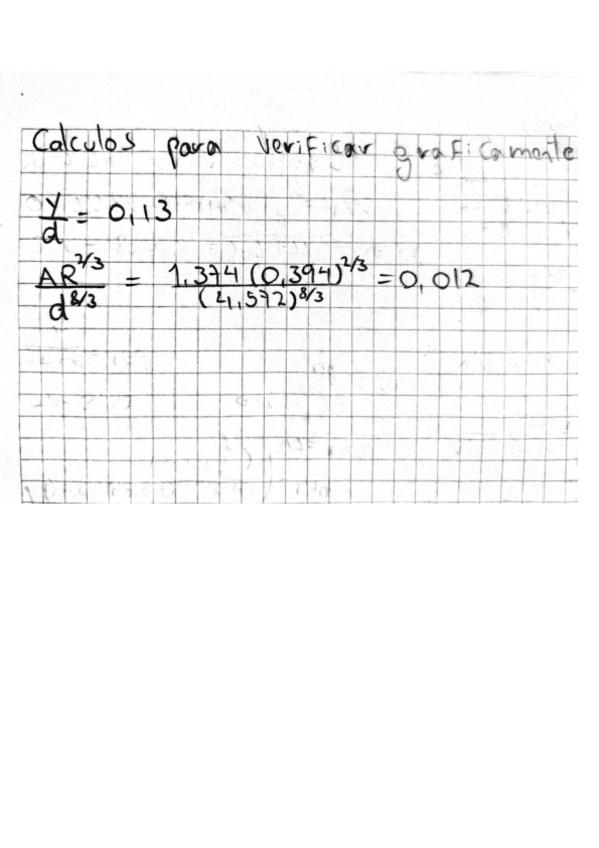 Calculos para verificar graficamente
y/d = 0,13
AR^2/3 / d^8/3 = 1,374 (0,394)^2/3 / (4,572)^8/3 = 0,012